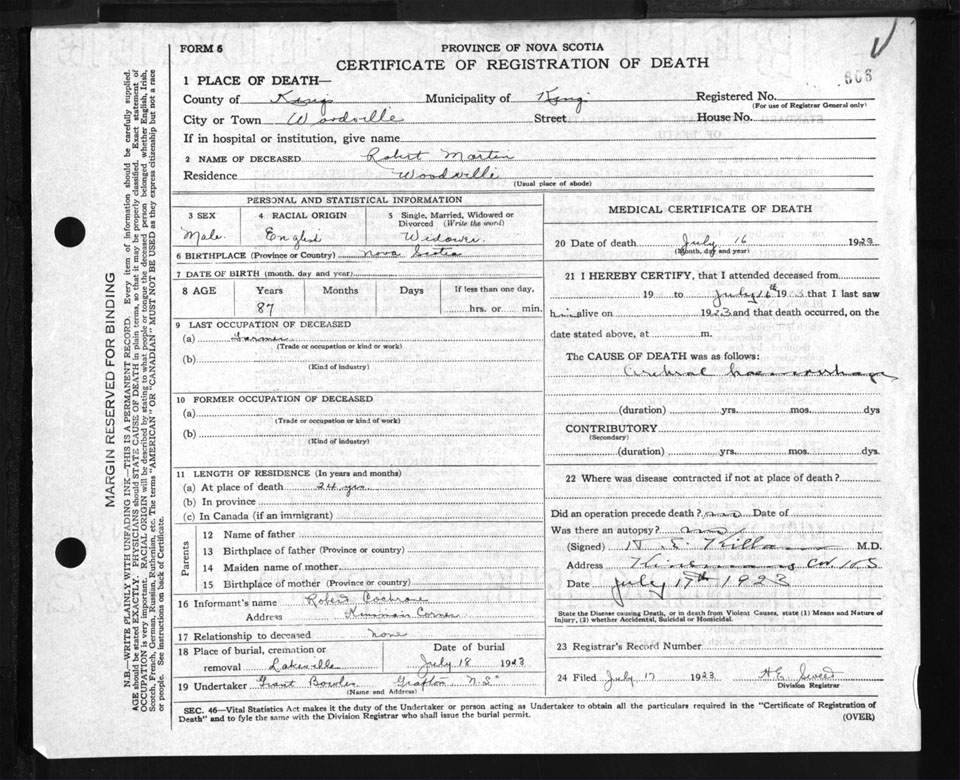 FORM 6
PROVINCE OF NOVA SCOTIA
CERTIFICATE OF REGISTRATION OF DEATH
608
1 PLACE OF DEATH—
County of Kings Municipality of Kings Registered No.
(For use of Registrar General only)
City or Town Woodville Street House No.
If in hospital or institution, give name
2 NAME OF DECEASED Robert Martin
Residence Woodville
(Usual place of abode)
PERSONAL AND STATISTICAL INFORMATION
3 SEX 4 RACIAL ORIGIN 5 Single, Married, Widowed or Divorced (Write the word)
Male. English Widower.
6 BIRTHPLACE (Province or Country) Nova Scotia
7 DATE OF BIRTH (month, day and year)
8 AGE Years Months Days If less than one day,
87 hrs. or min.
9 LAST OCCUPATION OF DECEASED
(a) Farmer
(Trade or occupation or kind or work)
(b)
(Kind of industry)
10 FORMER OCCUPATION OF DECEASED
(a)
(Trade or occupation or kind of work)
(b)
(Kind of industry)
11 LENGTH OF RESIDENCE (In years and months)
(a) At place of death 24 yrs
(b) In province
(c) In Canada (if an immigrant)
Parents
12 Name of father
13 Birthplace of father (Province or country)
14 Maiden name of mother
15 Birthplace of mother (Province or country)
16 Informant's name Robert Cochrane
Address Corner
17 Relationship to deceased none
18 Place of burial, cremation or removal Lakeville
Date of burial
July 18 1923
19 Undertaker Grant Bowles Grafton N.S.
(Name and Address)
MEDICAL CERTIFICATE OF DEATH
20 Date of death July 16 1923
(Month, day and year)
21 I HEREBY CERTIFY, that I attended deceased from
19 to July 16th 1923 that I last saw
him alive on 1923 and that death occurred, on the
date stated above, at m.
The CAUSE OF DEATH was as follows:
Cerebral haemorrhage
(duration) yrs. mos. dys
CONTRIBUTORY
(Secondary)
(duration) yrs. mos. dys.
22 Where was disease contracted if not at place of death?
Did an operation precede death? no Date of
Was there an autopsy? no
(Signed) Killam M.D.
Address
Date July 17th 1923
State the Disease causing Death, or in death from Violent Causes, state (1) Means and Nature of
Injury, (2) whether Accidental, Suicidal or Homicidal.
23 Registrar's Record Number
24 Filed July 17 1923
Division Registrar
SEC. 46—Vital Statistics Act makes it the duty of the Undertaker or person acting as Undertaker to obtain all the particulars required in the "Certificate of Registration of
Death" and to fyle the same with the Division Registrar who shall issue the burial permit.
(OVER)
MARGIN RESERVED FOR BINDING
N.B.—WRITE PLAINLY WITH UNFADING INK—THIS IS A PERMANENT RECORD. Every item of information should be carefully supplied.
AGE should be stated EXACTLY. PHYSICIANS should STATE CAUSE OF DEATH in plain terms, so that it may be properly classified. Exact statement of
OCCUPATION is very important. RACIAL ORIGIN will be described by stating to what people or tongue the deceased person belonged whether English, Irish,
Scotch, French, German, Russian, Ruthenian, etc. The terms "AMERICAN" OR "CANADIAN" MUST NOT BE USED as they express citizenship but not a race
or people. See instructions on back of Certificate.